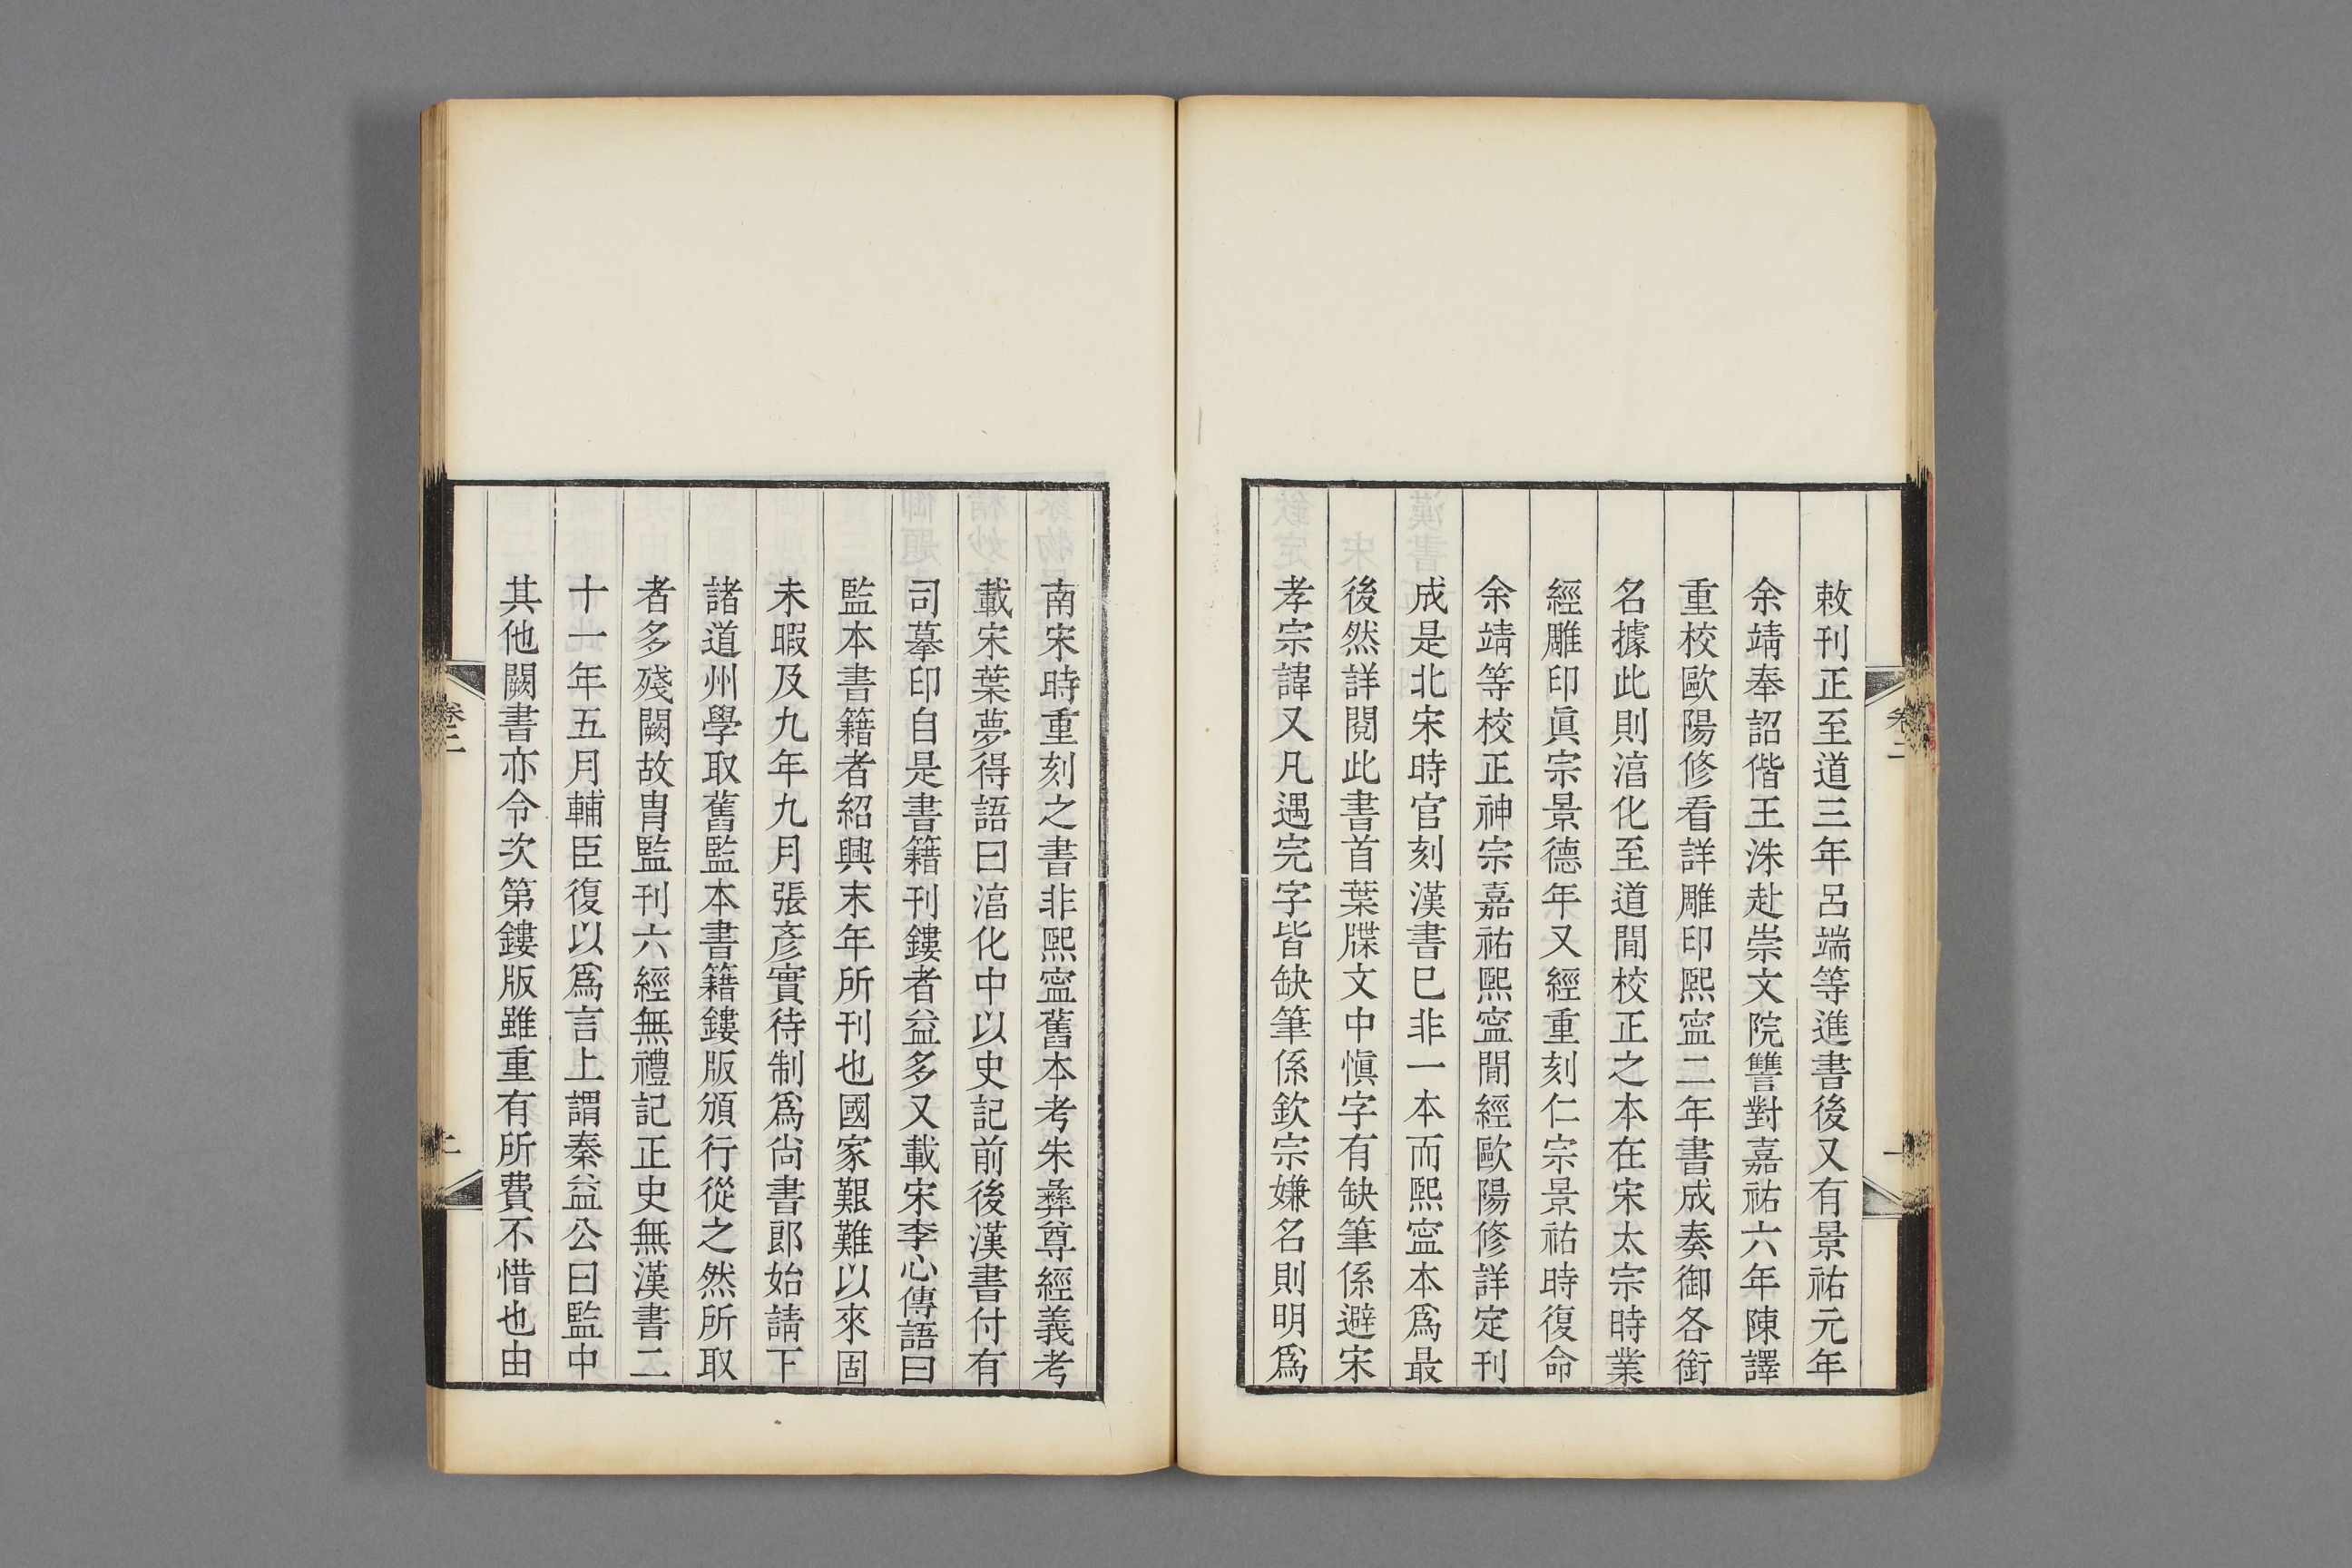 敕刊正至道三年呂端等進書後又有景祐元年
余靖奉詔偕王洙赴崇文院讐對嘉祐六年陳譯
重校歐陽修看詳雕印熙寍二年書成奏御各銜
名據此則湻化至道間校正之本在宋太宗時業
經雕印眞宗景德年又經重刻仁宗景祐時復命
余靖等校正神宗嘉祐熙寍間經歐陽修詳定刊
成是北宋時官刻漢書已非一本而熙寍本爲最
後然詳閱此書首葉牒文中愼字有缺筆係避宋
孝宗諱又凡遇完字皆缺筆係欽宗嫌名則明爲
卷二
一
南宋時重刻之書非熙寍舊本考朱彝尊經義考
載宋葉夢得語曰湻化中以史記前後漢書付有
司摹印自是書籍刊鏤者益多又載宋李心傳語曰
監本書籍者紹興末年所刊也國家艱難以來固
未暇及九年九月張彥實待制爲尙書郎始請下
諸道州學取舊監本書籍鏤版頒行從之然所取
者多殘闕故胄監刊六經無禮記正史無漢書二
十一年五月輔臣復以爲言上謂秦益公曰監中
其他闕書亦令次第鏤版雖重有所費不惜也由
卷二